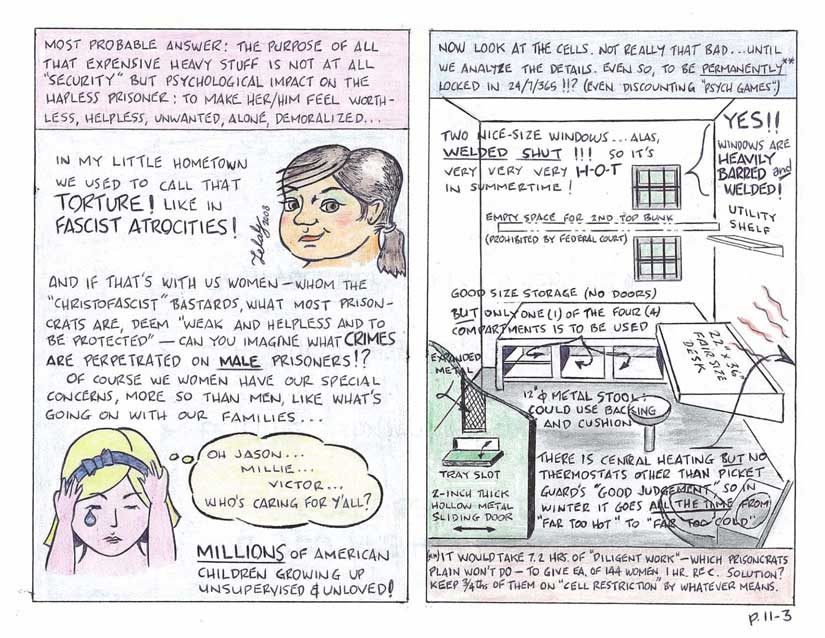 MOST PROBABLE ANSWER: THE PURPOSE OF ALL
THAT EXPENSIVE HEAVY STUFF IS NOT AT ALL
"SECURITY" BUT PSYCHOLOGICAL IMPACT ON THE
HAPLESS PRISONER: TO MAKE HER/HIM FEEL WORTH-
LESS, HELPLESS, UNWANTED, ALONE, DEMORALIZED...
IN MY LITTLE HOMETOWN
WE USED TO CALL THAT
TORTURE! LIKE IN
FASCIST ATROCITIES!
2008
AND IF THAT'S WITH US WOMEN—WHOM THE
"CHRISTOFASCIST" BASTARDS, WHAT MOST PRISON-
CRATS ARE, DEEM "WEAK AND HELPLESS AND TO
BE PROTECTED"— CAN YOU IMAGINE WHAT CRIMES
ARE PERPETRATED ON MALE PRISONERS!?
OF COURSE WE WOMEN HAVE OUR SPECIAL
CONCERNS, MORE SO THAN MEN, LIKE WHAT'S
GOING ON WITH OUR FAMILIES...
OH JASON...
MILLIE...
VICTOR...
WHO'S CARING FOR Y'ALL?
MILLIONS OF AMERICAN
CHILDREN GROWING UP
UNSUPERVISED & UNLOVED!
NOW LOOK AT THE CELLS. NOT REALLY THAT BAD...UNTIL
WE ANALYZE THE DETAILS. EVEN SO, TO BE PERMANENTLY**
LOCKED IN 24/7/365 !!? (EVEN DISCOUNTING "PSYCH GAMES")
TWO NICE-SIZE WINDOWS...ALAS,
WELDED SHUT !!! SO IT'S
VERY VERY VERY H-O-T
IN SUMMERTIME!
YES!!
WINDOWS ARE
HEAVILY
BARRED and
WELDED!
UTILITY
SHELF
EMPTY SPACE FOR 2ND TOP BUNK
(PROHIBITED BY FEDERAL COURT)
GOOD SIZE STORAGE (NO DOORS)
BUT ONLY ONE (1) OF THE FOUR (4)
COMPARTMENTS IS TO BE USED
22" x 36"
FAIR SIZE
DESK
EXPANDED
METAL
12" ⌀ METAL STOOL:
COULD USE BACKING
AND CUSHION
TRAY SLOT
2-INCH THICK
HOLLOW METAL
SLIDING DOOR
THERE IS CENTRAL HEATING BUT NO
THERMOSTATS OTHER THAN PICKET
GUARD'S "GOOD JUDGEMENT," SO IN
WINTER IT GOES ALL THE TIME FROM
"FAR TOO HOT" TO "FAR TOO COLD"
**) IT WOULD TAKE 7.2 HRS. OF "DILIGENT WORK"—WHICH PRISONCRATS
PLAIN WON'T DO — TO GIVE EA. OF 144 WOMEN 1 HR. REC. SOLUTION?
KEEP 3/4ths OF THEM ON "CELL RESTRICTION" BY WHATEVER MEANS.
p. 11-3